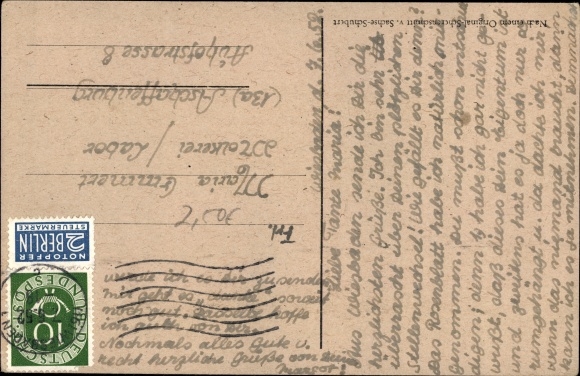 Nach einem Original-Scherenschnitt v. Sachse-Schubert
Wiesbaden d. 7.6.52.
Liebe Tante Maria!
Aus Wiesbaden sende ich Dir die
herzlichsten Grüße. Ich bin sehr
überrascht über Deinen plötzlichen
Stellenwechsel! Wie gefällt es Dir denn?
Das habe ich natürlich mit-
genommen. Du mußt schon entschul-
digen, habe ich gar nicht ge-
wußt, daß dieses Dein Eigentum ist
u. hat es ja doch nur so
rumgehängt u. da dachte ich mir
wenn das niemand braucht dann
kann ich es ja mitnehmen. Demnächst
werde ich es Dir zusenden.
mir geht es "danke" soweit
noch gut. Dasselbe hoffe
ich auch von Dir.
Nochmals alles Gute u.
recht herzliche Grüße von Deiner
Margot!
Frl.
Maria Emmert
Molkerei / Labor
(13a) Aschaffenburg
8
NOTOPFER
2 BERLIN
STEUERMARKE
10
BUNDESPOST